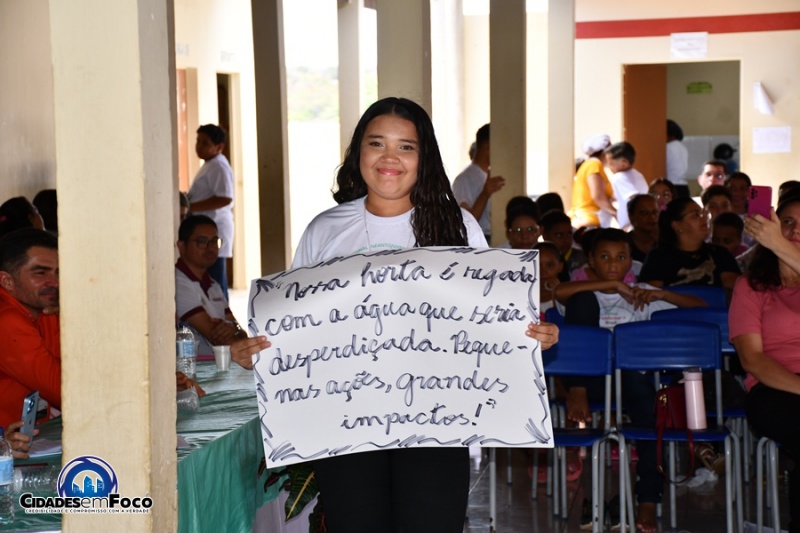 "Nossa horta é regada
com a água que seria
desperdiçada. Peque-
nas ações, grandes
impactos!"
CIDADESemFOCO
CREDIBILIDADE E COMPROMISSO COM A VERDADE